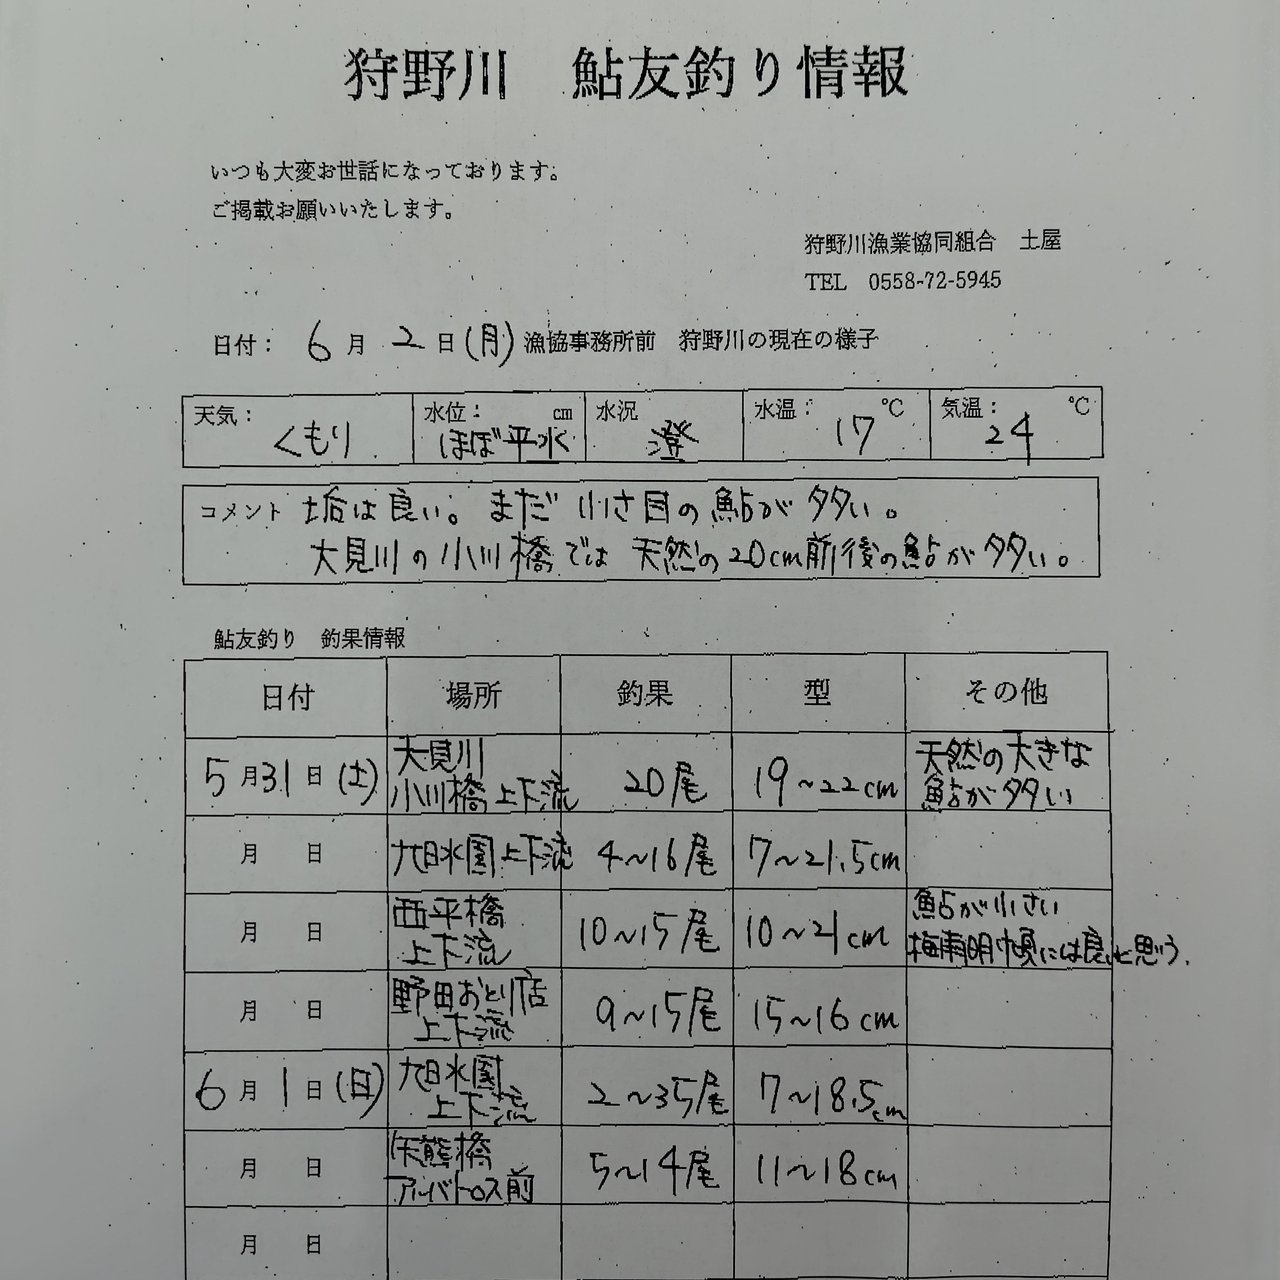 狩野川　鮎友釣り情報
いつも大変お世話になっております。
ご掲載お願いいたします。
狩野川漁業協同組合　土屋
TEL　0558-72-5945
日付：　6月2日(月)漁協事務所前　狩野川の現在の様子
天気：　水位：　cm　水況　水温：　℃　気温：　℃
くもり　ほぼ平水　澄　17　24
コメント　垢は良い。まだ小さ目の鮎が多い。
大見川の小川橋では天然の20cm前後の鮎が多い。
鮎友釣り　釣果情報
日付　場所　釣果　型　その他
5月31日(土)　大見川　20尾　19～22cm　天然の大きな
小川橋上下流　鮎が多い
月　日　大日水園上下流　4～16尾　7～21.5cm
月　日　西平橋　10～15尾　10～21cm　鮎が小さい
上下流　梅雨明け頃には良いと思う.
月　日　野田おとり店　9～15尾　15～16cm
上下流
6月1日(日)　大日水園　2～35尾　7～18.5cm
上下流
月　日　矢熊橋　5～14尾　11～18cm
アルバトロス前
月　日